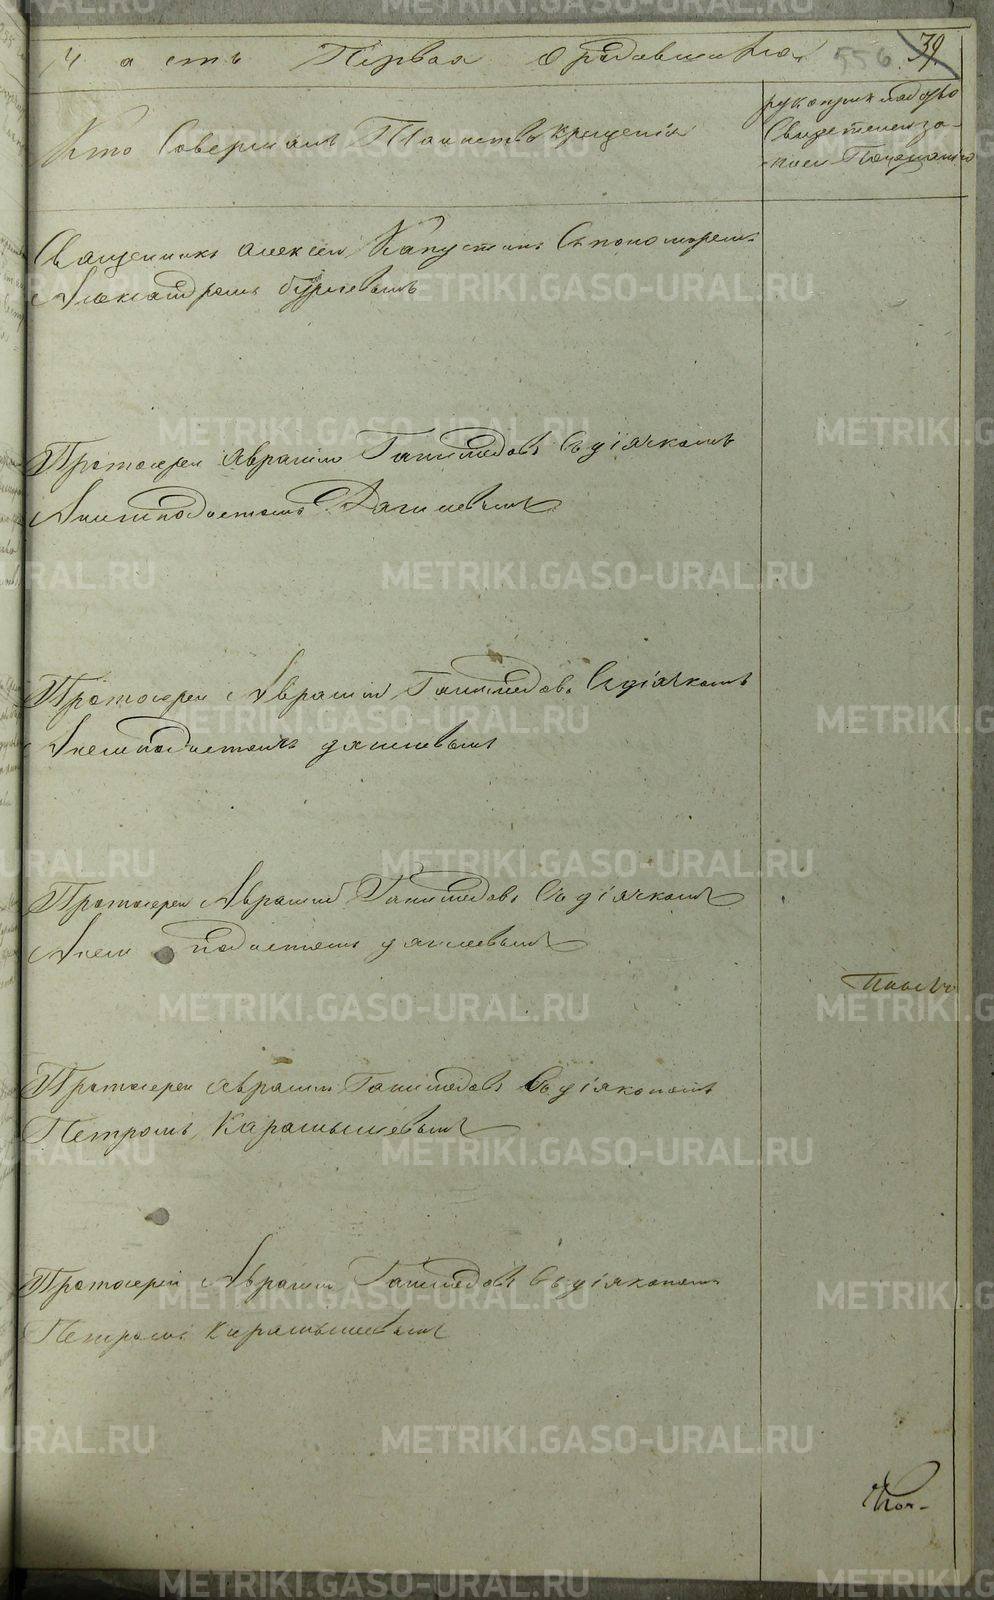 Часть Первая о родившихся 556 39
Кто Совершалъ Таинство крещенія
рукоприкладство
Свидетелей по
желанію
Священникъ алексей Капустинъ Съ пономаремъ
Александромъ
Протоиерей аврамий Ганимедовъ Съ діячкомъ
Анемподистомъ
Протоиерей Аврамий Ганимедовъ Съ діячкомъ
Анемподистомъ
Протоиерей Аврамий Ганимедовъ Съ діячкомъ
Анемподистомъ
Протоиерей аврамий Ганимедовъ Съ діякономъ
Петромъ Карамышевымъ
Протоиерей Аврамий Ганимедовъ Съ діякономъ
Петромъ Карамышевымъ
METRIKI.GASO-URAL.RU